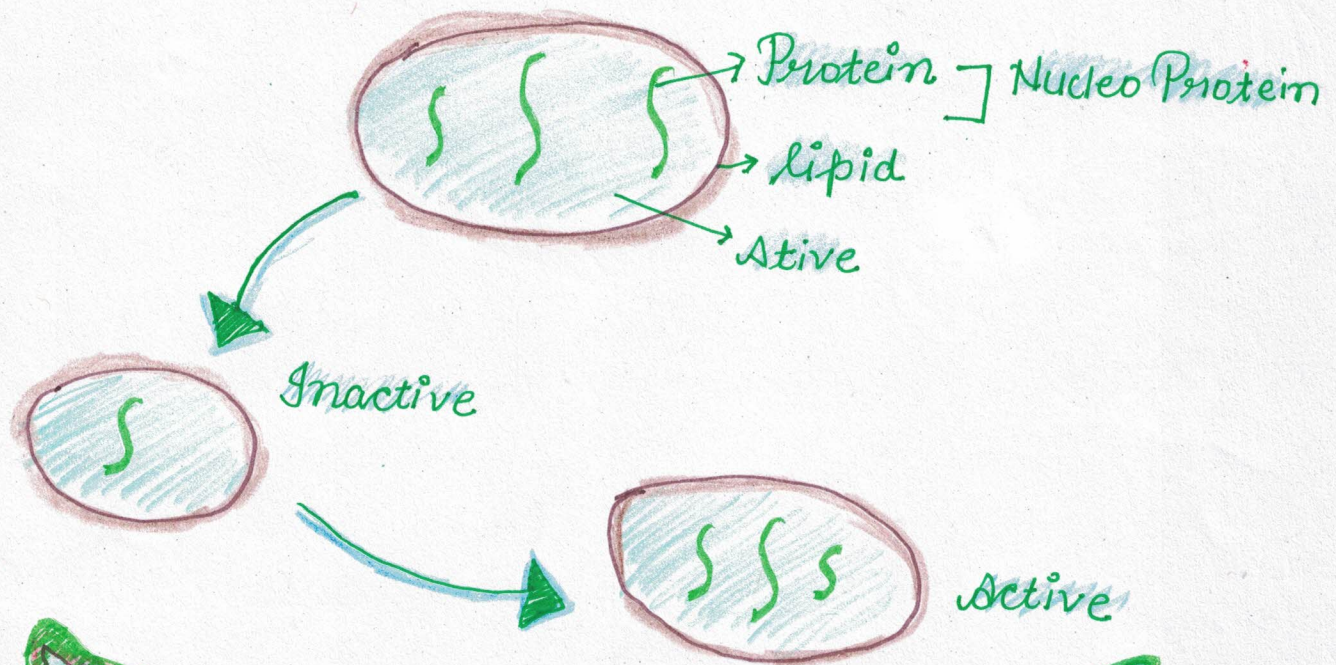 Protein ] Nucleo Protein
lipid
Ative
Inactive
Active